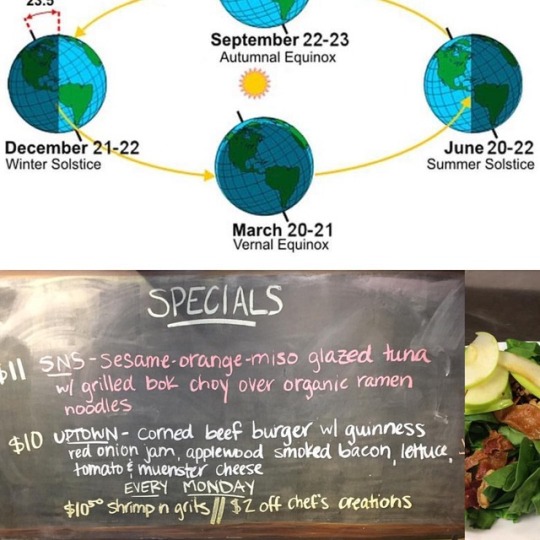 23.5
September 22-23
Autumnal Equinox
December 21-22
Winter Solstice
June 20-22
Summer Solstice
March 20-21
Vernal Equinox
SPECIALS
$11 SNS - sesame-orange-miso glazed tuna
w/ grilled bok choy over organic ramen
noodles
$10 UPTOWN - corned beef burger w/ guinness
red onion jam, applewood smoked bacon, lettuce,
tomato & muenster cheese
EVERY MONDAY
$10.50 shrimp n grits // $2 off chef's creations